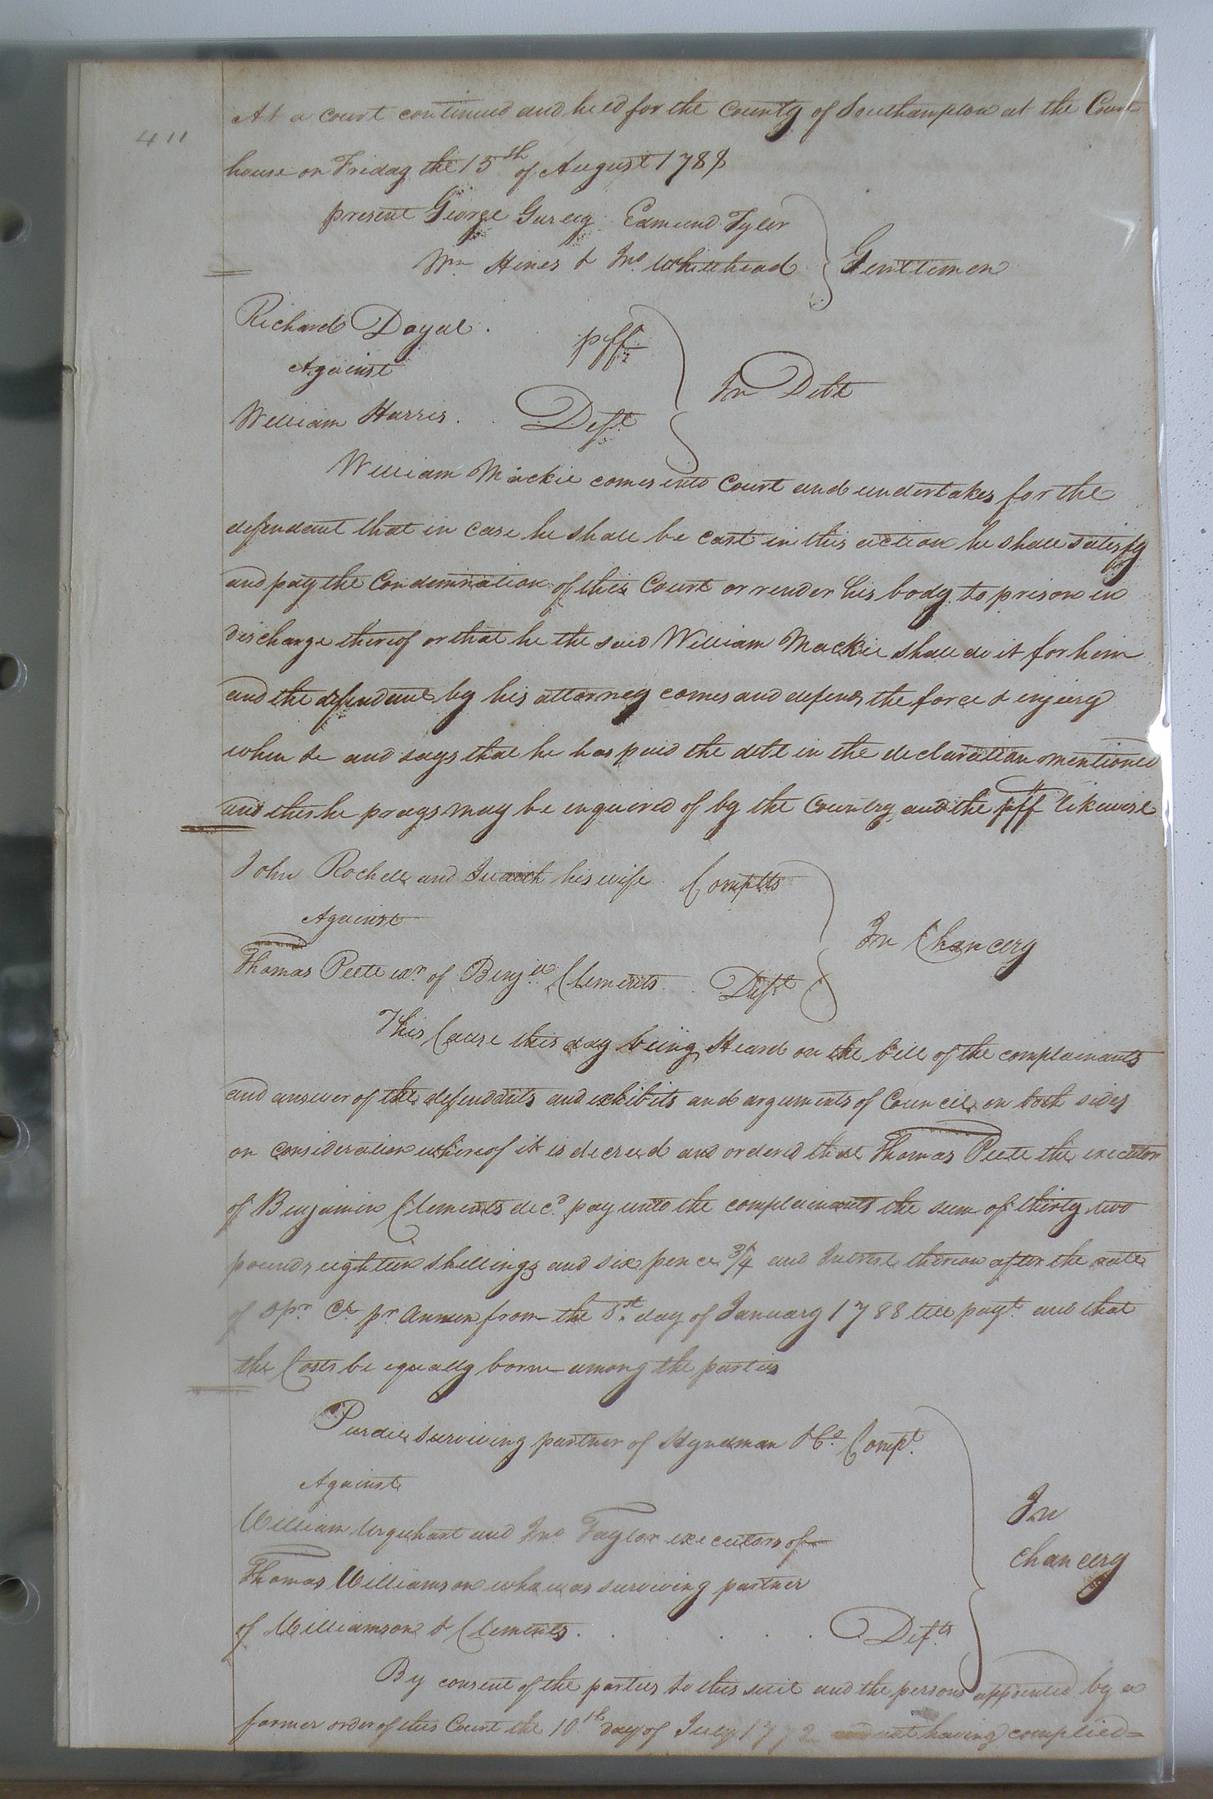 411
At a court continued and held for the County of Southampton at the Court
house on Friday the 15th of August 1788
present George Gurley Edmund Tyler
Wm Hines & Jno Whitehead Gentlemen
Richard Doyal plff
Against In Debt
William Harris Deft
William Mackie comes into Court and undertakes for the
defendant that in case he shall be cast in this action he shall satisfy
and pay the Condemnation of this Court or render his body to prison in
discharge thereof or that he the said William Mackie shall do it for him
and the defendant by his attorney comes and defends the force & injury
when &c and says that he has paid the debt in the declaration mentioned
and this he prays may be inquired of by the Country and the plff likewise
John Rochell and Judith his wife Complts
Against In Chancery
Thomas Peete exr of Benja Clements Deft
This Cause this day being Heard on the bill of the complainants
and answer of the defendants and exhibits and arguments of Council on both sides
on consideration whereof it is decreed and ordered that Thomas Peete the executor
of Benjamin Clements decd pay unto the complainants the sum of thirty two
pounds eighteen shillings and six pence 3/4 and Interest thereon after the rate
of 5 pr Ct pr Annum from the day of January 1788 till payt and that
the Costs be equally borne among the parties
Purdie surviving partner of Hyndman & Co Complt
Against
William Urquhart and Jno Taylor executors of In
Thomas Williamson who was surviving partner chancery
of Williamson & Clements Defts
By consent of the parties to this suit and the persons appointed by a
former order of this Court the 10th day of July 1772 not having complied